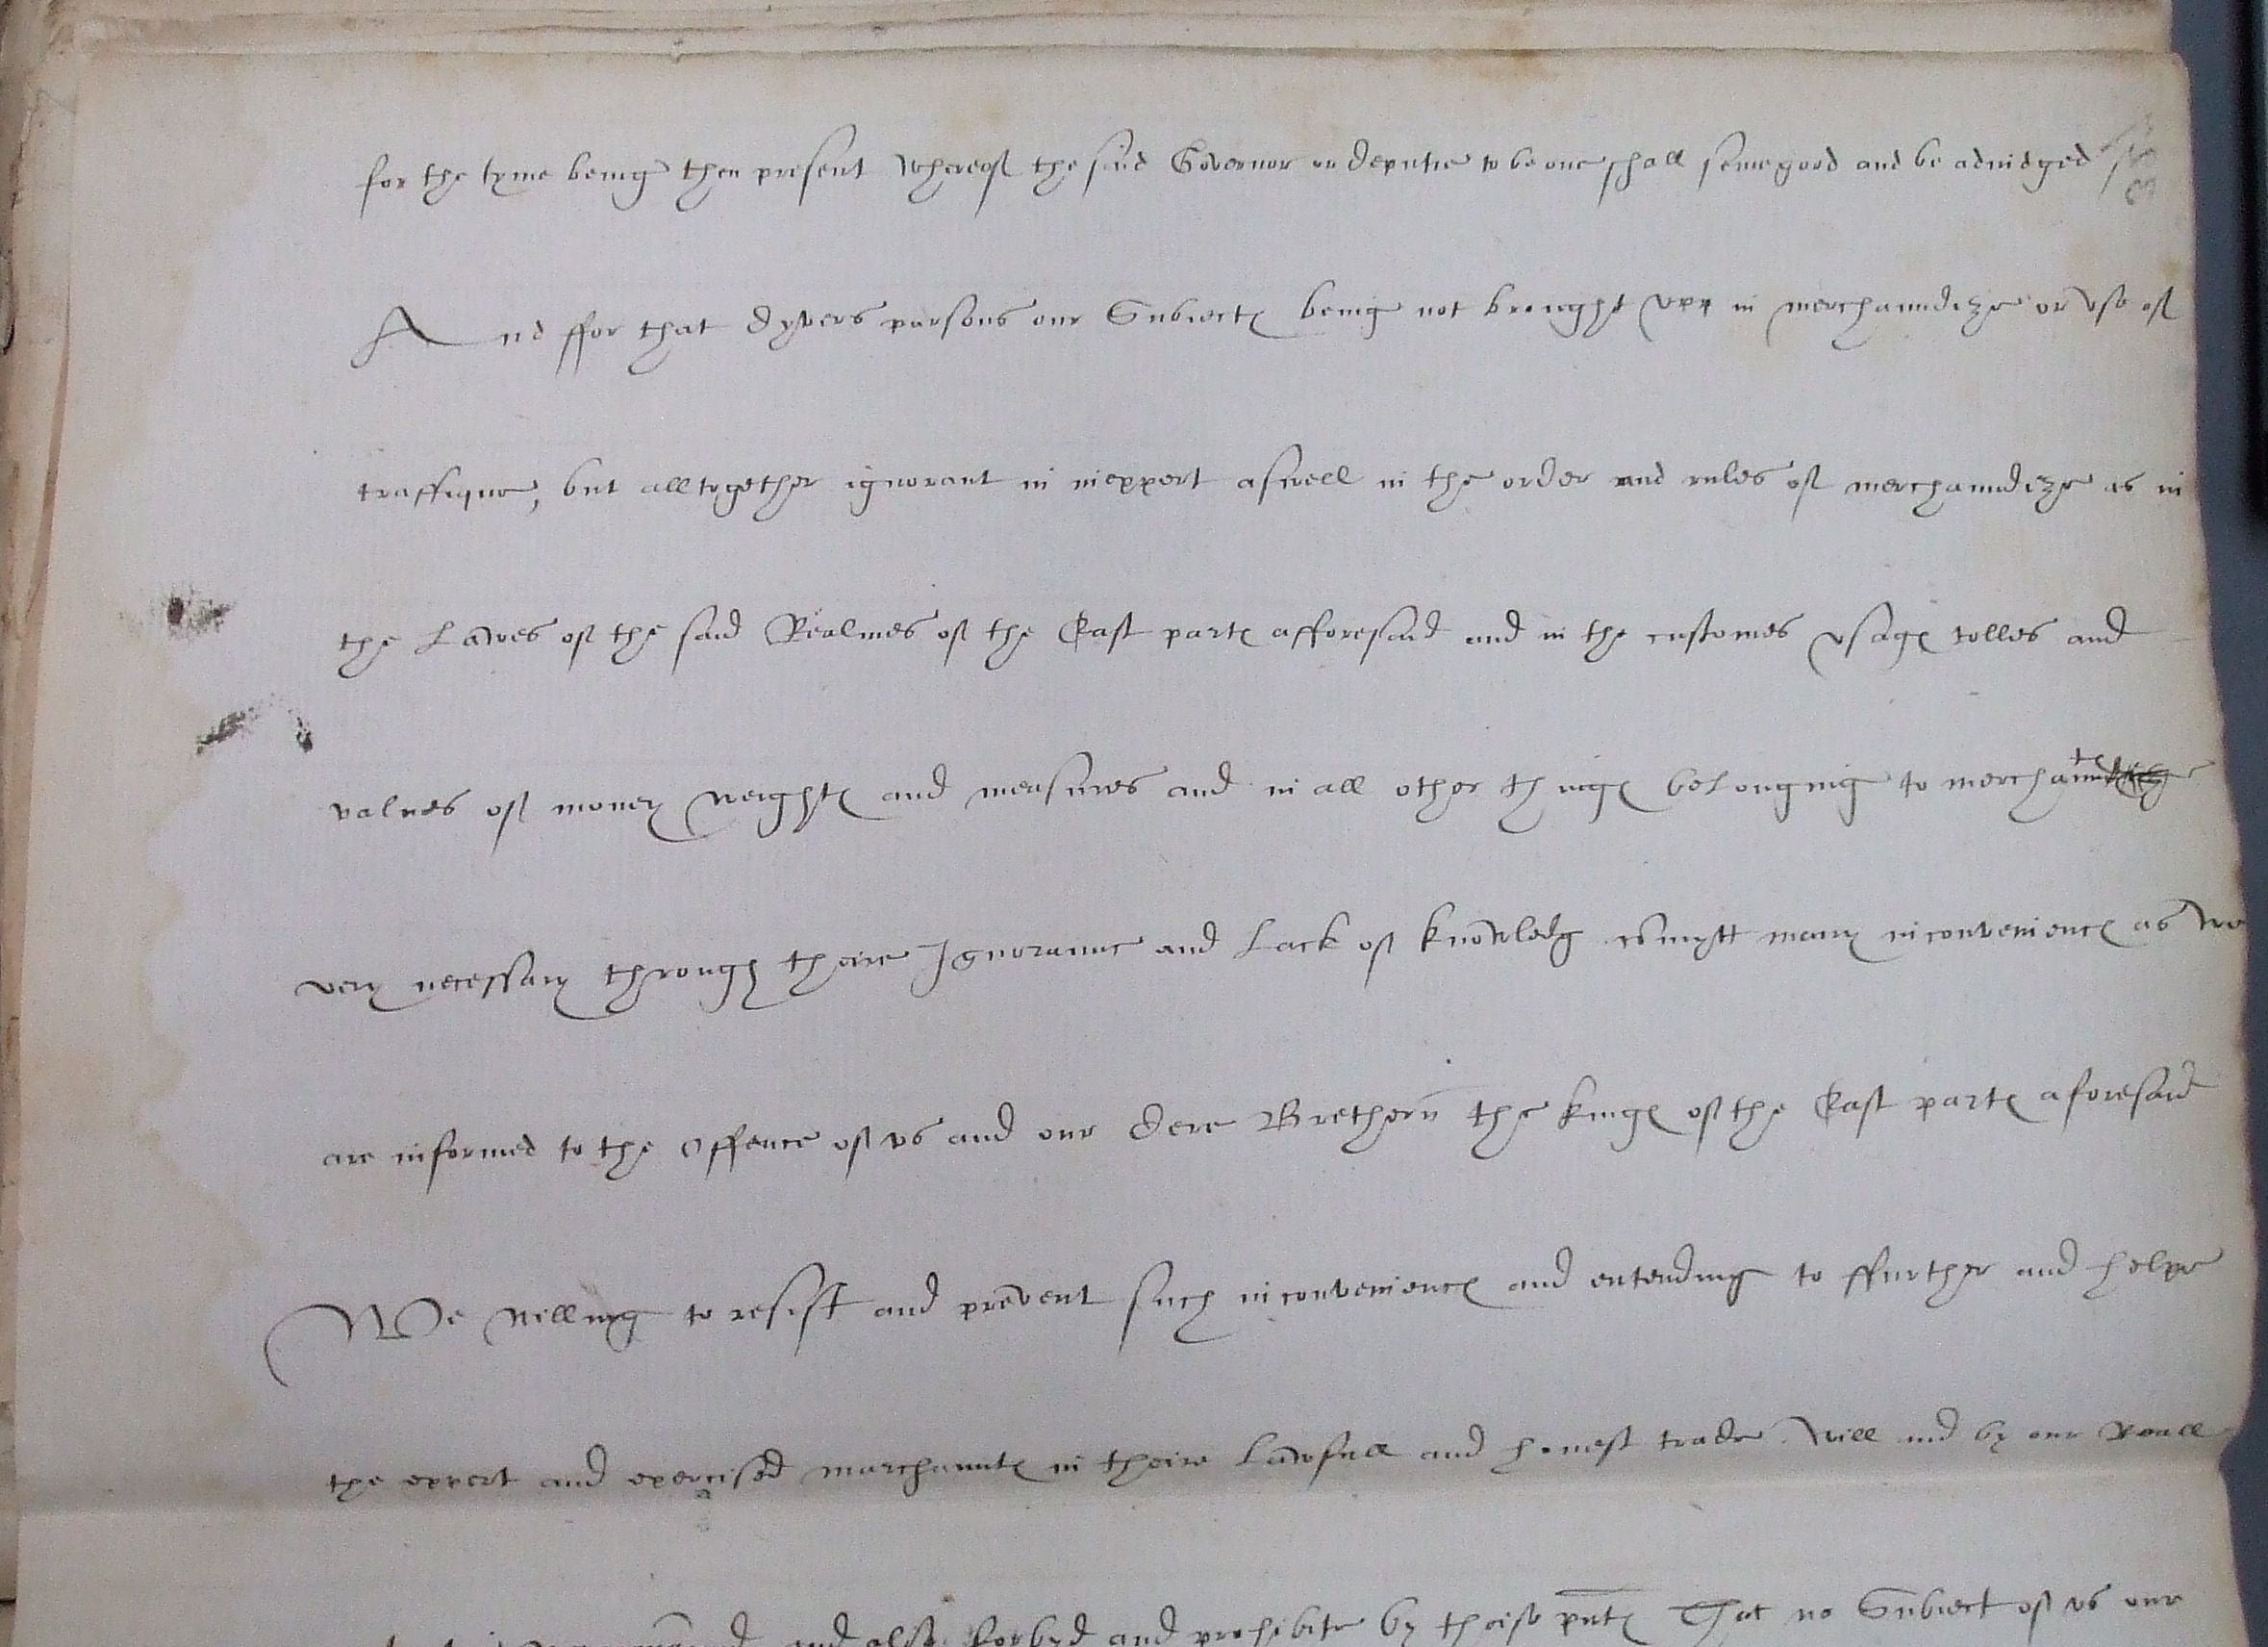 for the tyme being then present whereof the said Governor or deputie to be one shall seme good and be adiudged
And ffor that dyvers parsons our Subiectes being not brought vpp in merchaundize or vse of
traffique, but alltogether ignorant in inexpert aswell in the order and rules of merchaundize as in
the Lawes of the said Realmes of the East partes afforesaid and in the customes vsages tolles and
values of money weightes and measures and in all other thinges belonging to merchauntes
very necessary through theire Ignoraunce and Lack of knowledg comytt many inconveniences as we
are informed to the offence of vs and our dere Bretherñ the kinges of the East partes aforesaid
We willing to resist and prevent such inconveniences and entending to ffurther and helpe
the expert and exercised marchauntes in theire Lawfull and honest trade will and by our Roiall
and also forbyd and prohibite by theise pntes That no Subiect of vs our